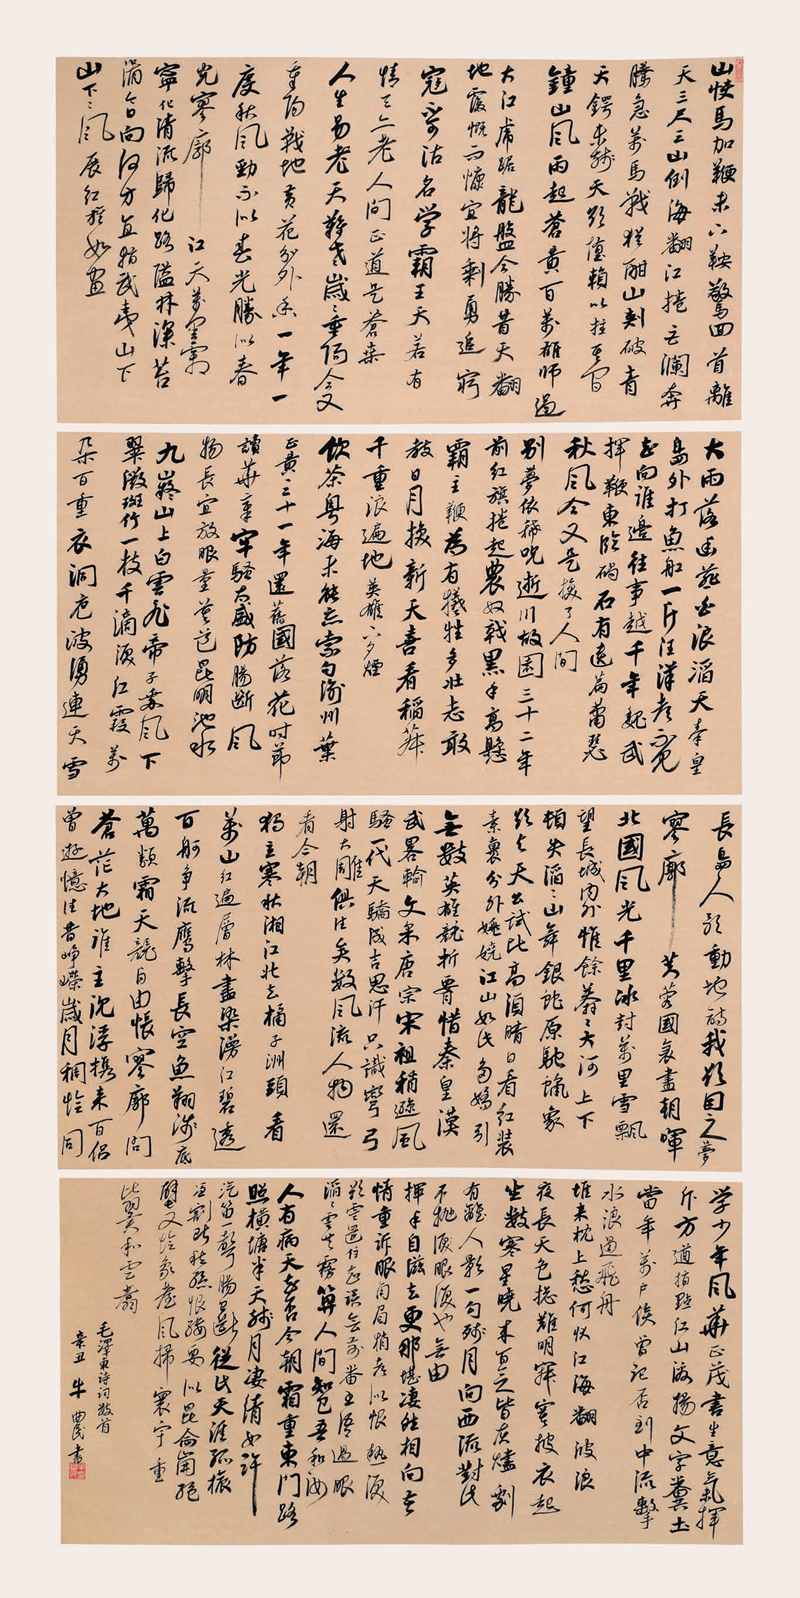 山快馬加鞭未下鞍驚回首離
天三尺三山倒海翻江捲巨瀾奔
騰急萬馬戰猶酣山刺破青
天鍔未殘天欲墮賴以拄其間
鐘山風雨起蒼黃百萬雄師過
大江虎踞龍盤今勝昔天翻
地覆慨而慷宜將剩勇追窮
寇不可沽名学霸王天若有
情天亦老人間正道是蒼桑
人生易老天難老歲々重陽今又
重陽戰地黃花分外香一年一
度秋風勁不似春光勝似春
光寥廓江天萬里霜
寧化清流歸化路隘林深苔
滑今日向何方直指武夷山下
山下々風展紅旗如畫
大雨落幽燕白浪滔天秦皇
島外打魚船一片汪洋都不見
知向誰邊往事越千年魏武
揮鞭東臨碣石有遺篇蕭瑟
秋風今又是換了人間
別夢依稀咒逝川故園三十二年
前紅旗捲起農奴戟黑手高懸
霸主鞭為有犧牲多壯志敢
教日月換新天喜看稻菽
千重浪遍地英雄下夕煙
飲茶粵海未能忘索句渝州葉
正黃三十一年還舊國落花時節
讀華章牢騷太盛防腸斷風
物長宜放眼量莫道昆明池水
九嶷山上白雲飛帝子乘風下
翠微斑竹一枝千滴淚紅霞萬
朵百重衣洞庭波湧連天雪
長島人歌動地詩我欲因之夢
寥廓芙蓉國裏盡朝暉
北國風光千里冰封萬里雪飄
望長城內外惟餘莽々大河上下
頓失滔々山舞銀蛇原馳蠟象
欲与天公試比高須晴日看紅裝
素裹分外妖嬈江山如此多嬌引
無數英雄競折腰惜秦皇漢
武畧輸文采唐宗宋祖稍遜風
騷一代天驕成吉思汗只識彎弓
射大雕俱往矣數風流人物還
看今朝
獨立寒秋湘江北去橘子洲頭看
萬山紅遍層林盡染漫江碧透
百舸爭流鷹擊長空魚翔淺底
萬類霜天競自由悵寥廓問
蒼茫大地誰主沉浮攜來百侶
曾遊憶往昔崢嶸歲月稠恰同
学少年風華正茂書生意氣揮
斥方遒指點江山激揚文字糞土
當年萬戶侯曾記否到中流擊
水浪遏飛舟
堆來枕上愁何狀江海翻波浪
夜長天色總難明寂寞披衣起
坐數寒星曉來百念皆灰燼剩
有離人影一勾殘月向西流對此
不拋淚眼淚也無由
揮手自茲去更那堪淒然相向苦
情重訴眼角眉梢都似恨熱淚
欲零還住知誤會前番書語過眼
滔々雲共霧算人間知己吾和汝
人有病天知否今朝霜重東門路
照橫塘半天殘月淒清如許
汽笛一聲腸已斷從此天涯孤旅
憑割斷愁絲恨縷要似昆侖崩絕
壁又恰象臺風掃寰宇重
比翼和雲翥
毛澤東詩詞數首
辛丑 牛